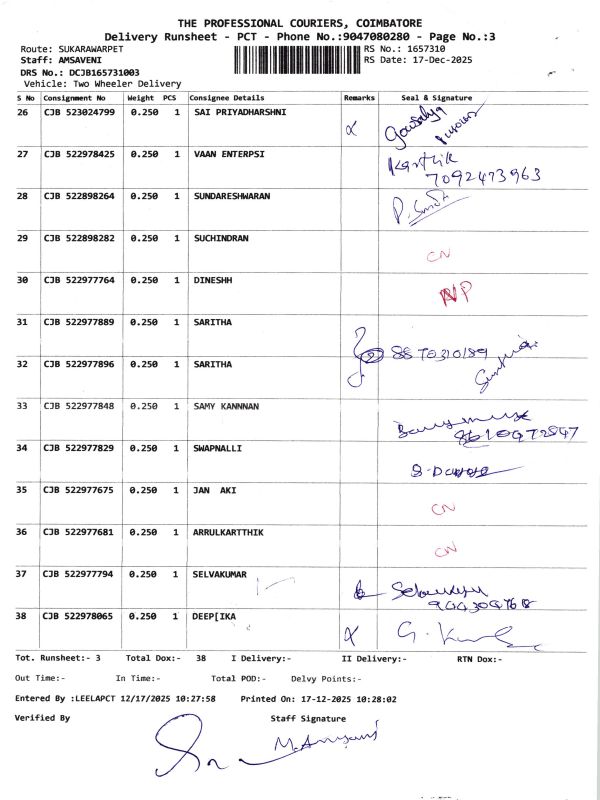 THE PROFESSIONAL COURIERS, COIMBATORE
Delivery Runsheet - PCT - Phone No.:9047080280 - Page No.:3
Route: SUKARAWARPET RS No.: 1657310
Staff: AMSAVENI RS Date: 17-Dec-2025
DRS No.: DCJB165731003
Vehicle: Two Wheeler Delivery
S No Consignment No Weight PCS Consignee Details Remarks Seal & Signature
26 CJB 523024799 0.250 1 SAI PRIYADHARSHNI
27 CJB 522978425 0.250 1 VAAN ENTERPSI Karthik
7092473963
28 CJB 522898264 0.250 1 SUNDARESHWARAN
29 CJB 522898282 0.250 1 SUCHINDRAN CN
30 CJB 522977764 0.250 1 DINESHH NP
31 CJB 522977889 0.250 1 SARITHA 8870310189
32 CJB 522977896 0.250 1 SARITHA
33 CJB 522977848 0.250 1 SAMY KANNNAN
34 CJB 522977829 0.250 1 SWAPNALLI
35 CJB 522977675 0.250 1 JAN AKI CN
36 CJB 522977681 0.250 1 ARRULKARTTHIK CN
37 CJB 522977794 0.250 1 SELVAKUMAR
38 CJB 522978065 0.250 1 DEEP[IKA
Tot. Runsheet:- 3 Total Dox:- 38 I Delivery:- II Delivery:- RTN Dox:-
Out Time:- In Time:- Total POD:- Delvy Points:-
Entered By :LEELAPCT 12/17/2025 10:27:58 Printed On: 17-12-2025 10:28:02
Verified By Staff Signature